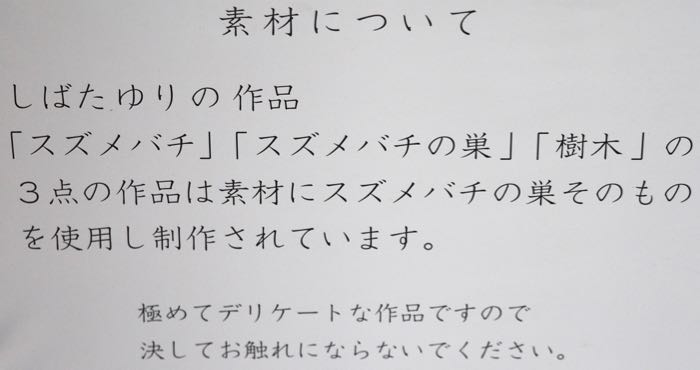 素材について
しばたゆりの作品
「スズメバチ」「スズメバチの巣」「樹木」の
３点の作品は素材にスズメバチの巣そのもの
を使用し制作されています。
極めてデリケートな作品ですので
決してお触れにならないでください。